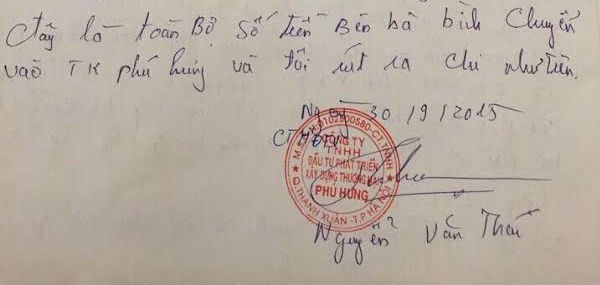 Đây là toàn Bộ số tiền Bên bà bích Chuyển
vào TK phú hưng và tôi rút ra chi như trên.
Ngày 30/9/2015
CTHĐTV
M.S.D.N:0102800580-C.T.T.N.H.H
CÔNG TY
TNHH
ĐẦU TƯ PHÁT TRIỂN
XÂY DỰNG THƯƠNG MẠI
PHÚ HƯNG
Q.THANH XUÂN-T.P HÀ NỘI
Nguyễn Văn Thái